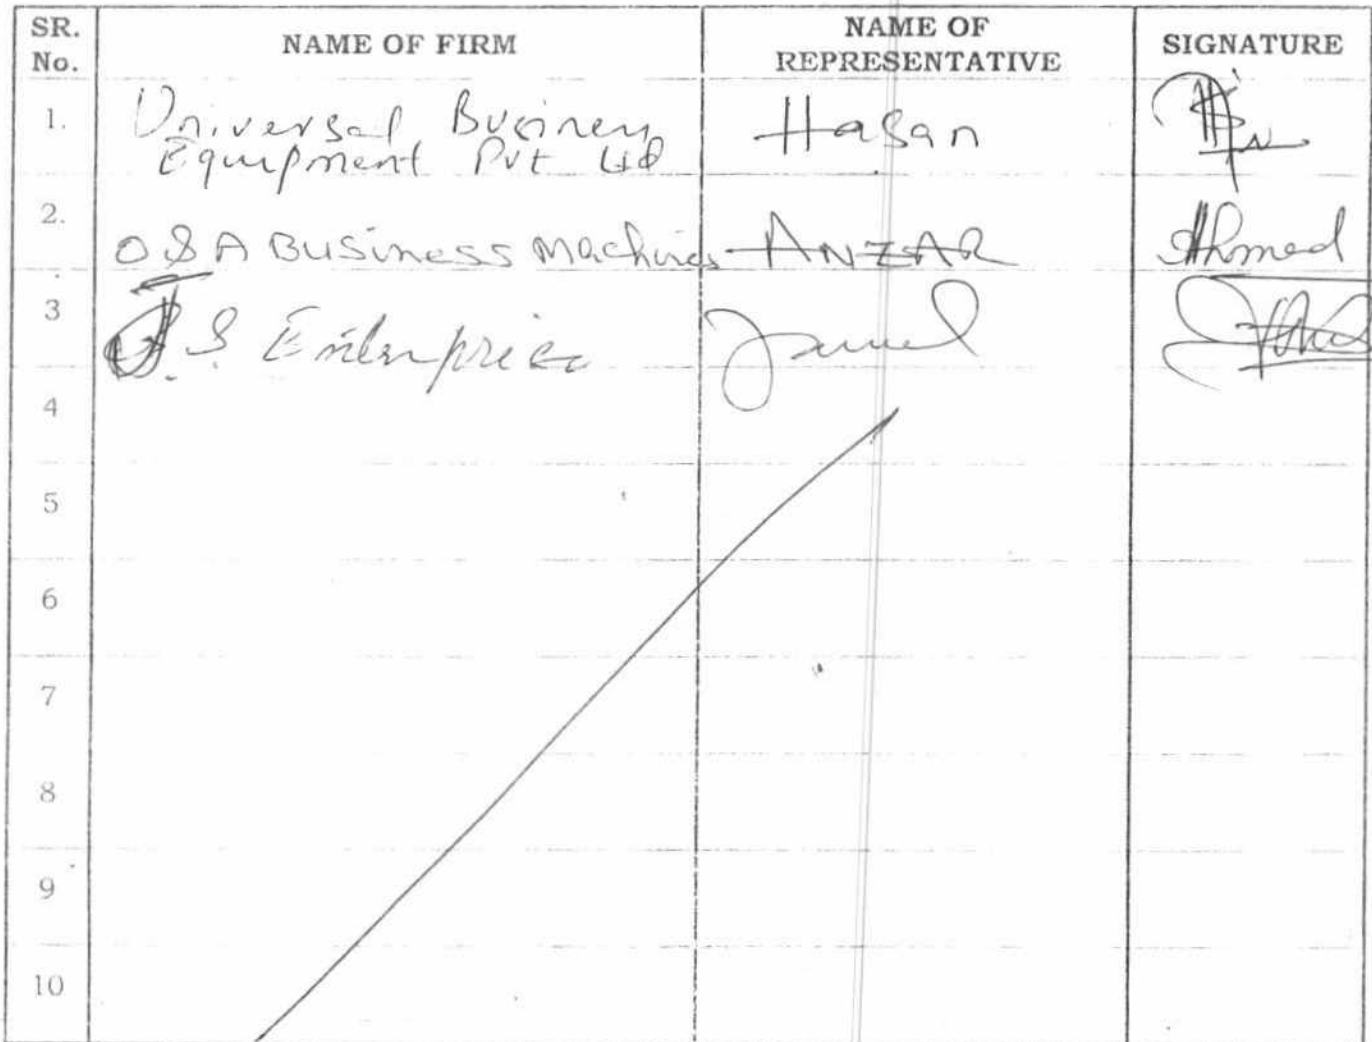 SR. No. NAME OF FIRM NAME OF REPRESENTATIVE SIGNATURE
1. Universal Business Hasan
Equipment Pvt Ltd
2. O.S A Business Machines ANZAR Ahmed
3 J.S Enterprises Jameel
4
5
6
7
8
9
10